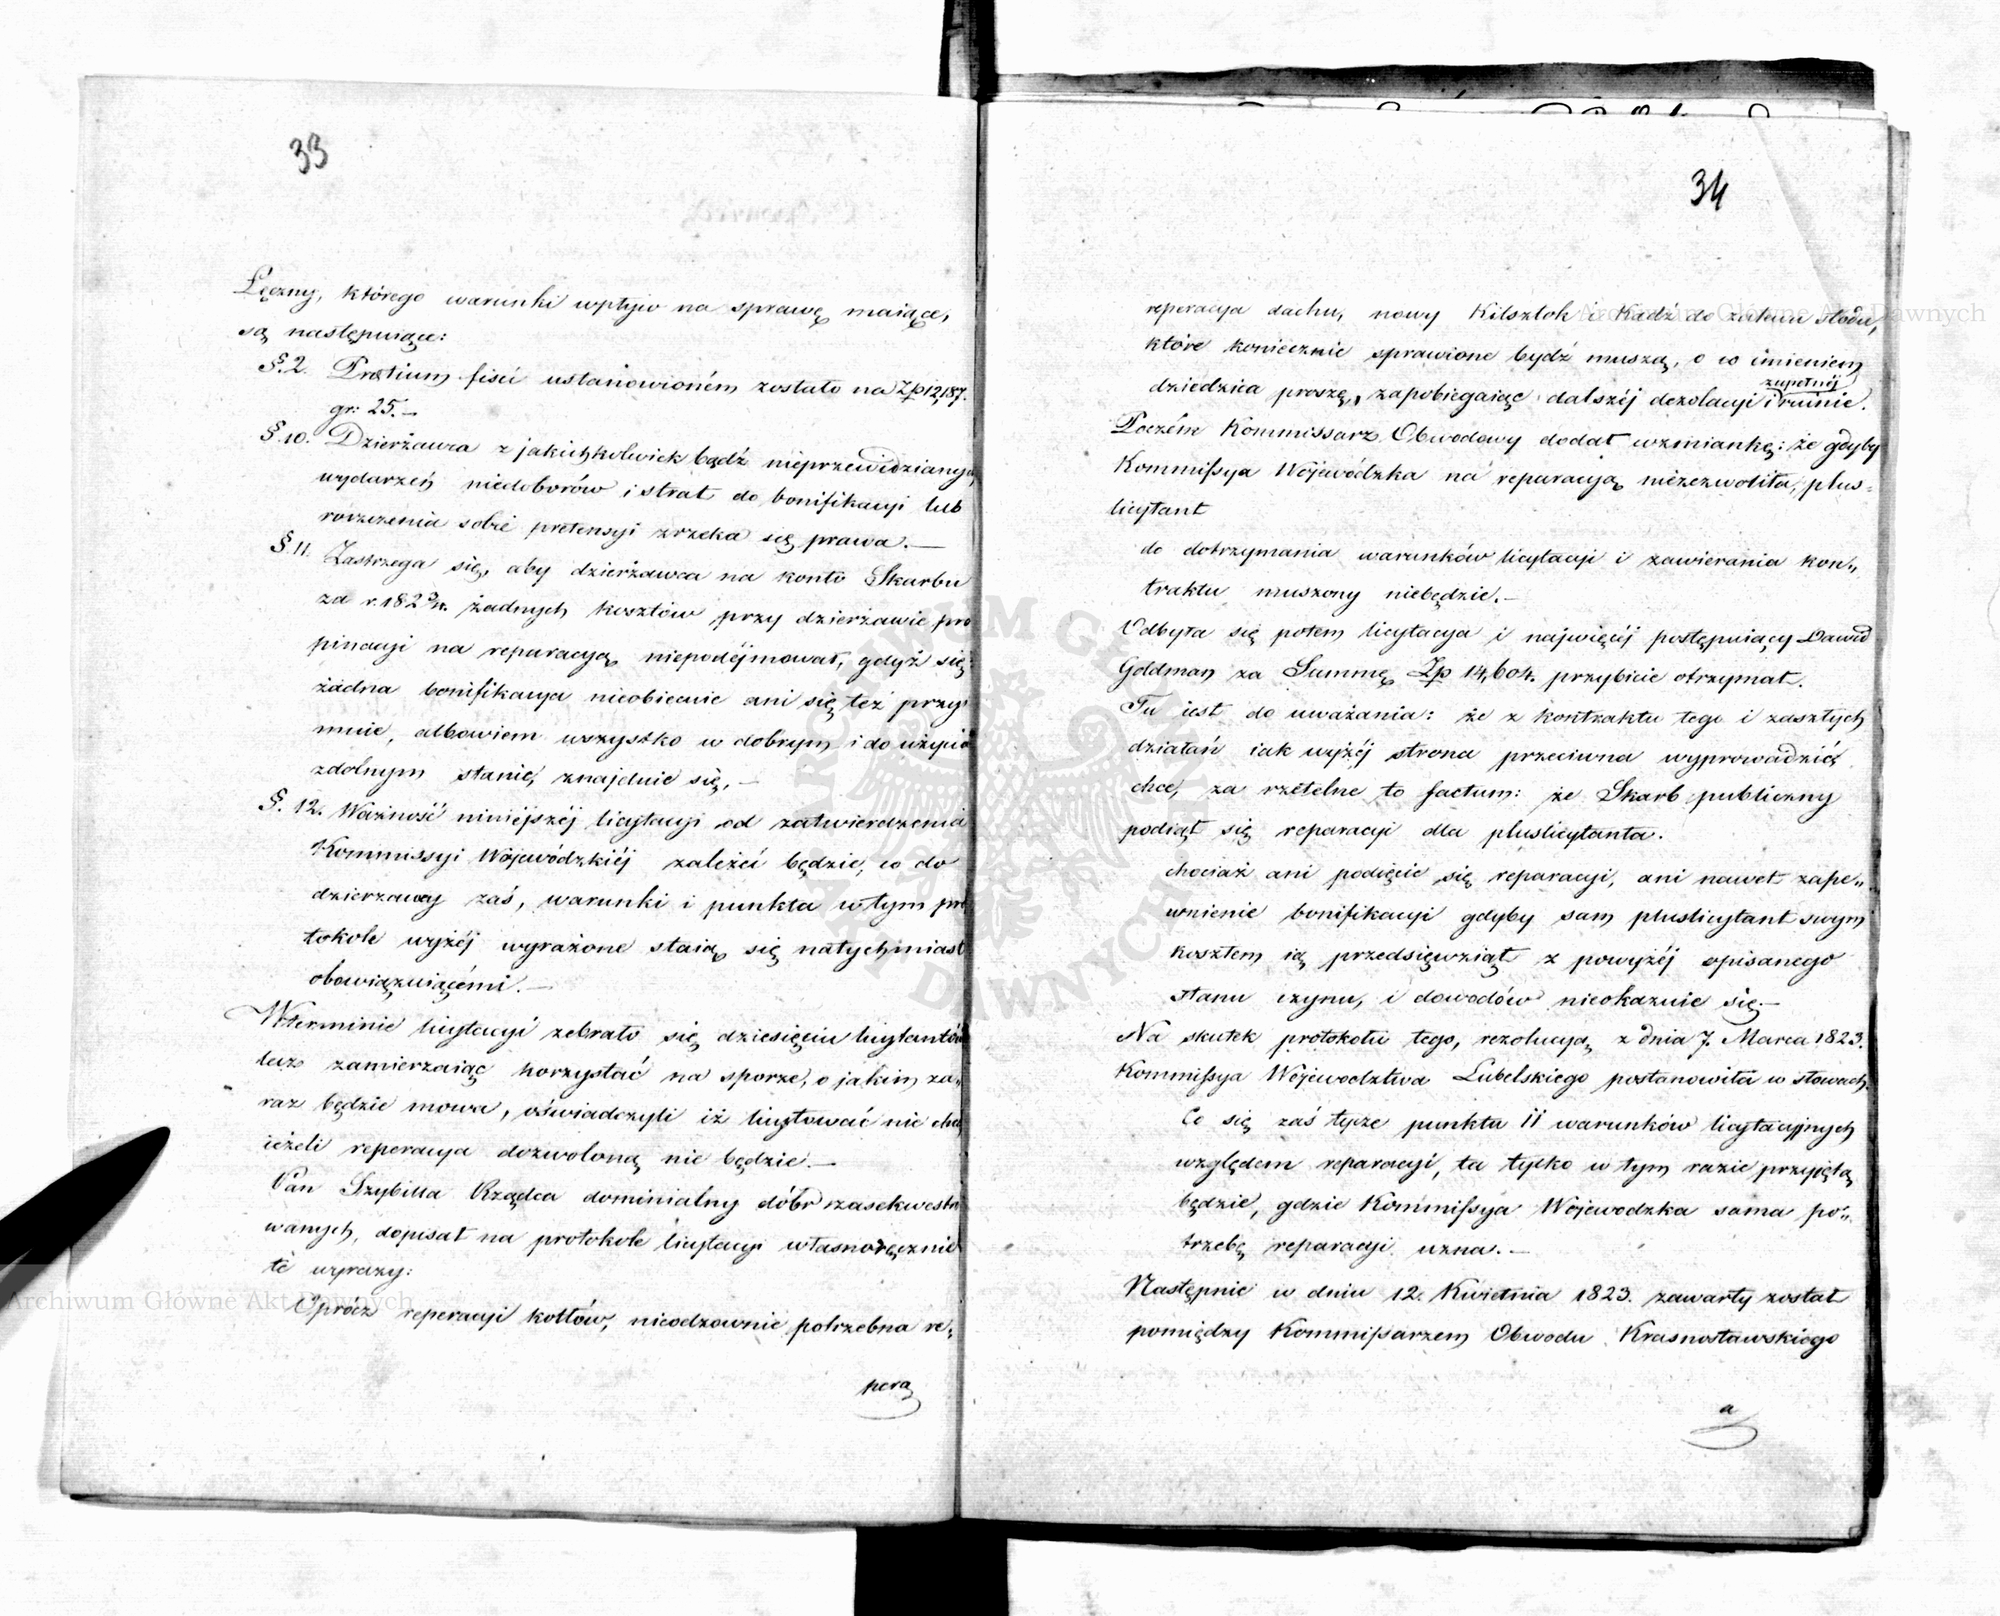 33
Łęczny, którego warunki wpływ na sprawę maiące,
są następuiące:
§. 2. Pretium fisci ustanowioném zostało na Zp 12,187.
gr: 25. —
§. 10. Dzierżawca z jakichkolwiek bądź nieprzewidzianych
wydarzeń niedoborów i strat do bonifikacyi lub
roszczenia sobie pretensyi zrzeka się prawa. —
§. 11. Zastrzega się, aby dzierżawca na konto Skarbu
za r. 182 3/4. żadnych kosztów przy dzierżawie pro
pinacyi na reparacyą niepodéjmował, gdyż się
żadna bonifikacya nieobiecuie ani się też przy
muie, albowiem wszystko w dobrym i do użycia
zdolnym stanie, znajduie się. —
§. 12. Ważność niniéjszéj licytacyi od zatwierdzenia
Kommissyi Wojewódzkiéj zależéć będzie, co do
dzierżawcy zaś, warunki i punkta w tym pro
tokole wyżéj wyrażone staią się natychmiast
obowiązuiącémi. —
W terminie licytacyi zebrało się dziesięciu licytantów
lecz zamierzaiąc korzystać na sporze, o jakim za„
raz będzie mowa, oświadczyli iż licytować nie chcą
ieżeli reperacya dozwoloną nie będzie. —
Pan Szybilla Rządca dominialny dóbr zasekwestro
wanych, dopisał na protokole licytacyi własnoręcznie
té wyrazy:
Oprócz reperacyi kotłów, nieodzownie potrzebna re„
pera
34
reperacya dachu, nowy Kilsztok i Kadź do zalewu słodu,
które koniecznie sprawione bydź muszą, o co imieniem
zupełnéj
dziedzica proszę, zapobiegaiąc dalszéj dezolacyi i ruinie.
Poczém Kommissarz Obwodowy dodał wzmiankę: że gdyby
Kommissya Wojewódzka na reparacyą niezezwoliła, plus=
licytant
do dotrzymania warunków licytacyi i zawierania kon„
traktu muszony niebędzie. —
Odbyła się potem licytacya i najwięcéj postępuiący Dawid
Goldman za Summę Zp 14,604. przybicie otrzymał.
Tu iest do uważania: że z kontraktu tego i zaszłych
działań iak wyżéj strona przeciwna wyprowadzić
chce, za rzetelne to factum: że Skarb publiczny
podiął się reparacyi dla pluslicytanta.
chociaż ani podięcie się reparacyi, ani nawet zape„
wnienie bonifikacyi gdyby sam pluslicytant swym
kosztem ią przedsięwziął z powyżéj opisanego
stanu czynu, i dowodów nieokazuie się. —
Na skutek protokołu tego, rezolucyą z dnia 7. Marca 1823.
Kommissya Województwa Lubelskiego postanowiła w słowach.
Co się zaś tycze punktu 11 warunków licytacyjnych
względem reparacyi, ta tylko w tym razie przyjętą
będzie, gdzie Kommissya Wojewodzka sama po„
trzebę reparacyi uzna. —
Następnie w dniu 12. Kwietnia 1823. zawarty został
pomiędzy Kommissarzem Obwodu Krasnostawskiego
a
Archiwum Główne Akt Dawnych
Archiwum Główne Akt Dawnych
ARCHIWUM GŁÓWNE AKT DAWNYCH